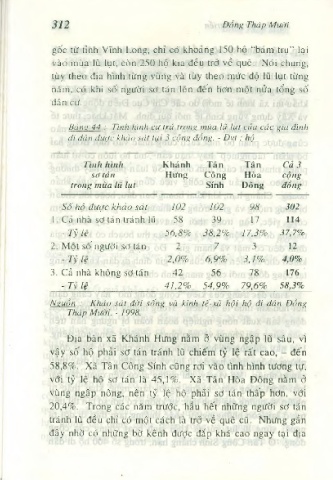 312 Đồng Tháp Mười
gốc từ tỉnh Vĩnh Long, chỉ có khoảng 150 hộ "bám trụ" lại
vào mùa lũ lụt, còn 250 hộ kia đều trở về quê. Nói chung,
tùy theo địa hình từng vùng và tùy theo mức độ lũ lụt từng
năm, có khi số người sơ tán lên đến hơn một nửa tổng số
dân cư.
Bảng 44 : Tình hình cư trú trong mùa lũ lụt của các gia đình
di dân được khảo sát tại 3 cộng đồng. - Đvt : hộ
Tình hình Khánh Tân Tân Cả 3
sơ tán Hưng Công Hòa cộng
trong mùa lũ lụt Sính Đông đồng
Số hộ được khảo sát 102 102 98 302
1. Cả nhà sơ tán tránh lũ 58 39 17 114
- Tỷ lệ 56,8% 38,2% 17,3% 37,7%
2. Một số người sơ tán 2 7 3 12
- Tỷ lệ 2,0% 6,9% 3,1% 4,0%
3. Cả nhà không sơ tán 42 56 78 176
- Tỷ lệ 41,2% 54,9% 79,6% 58,3%
Nguồn : Khảo sát đời sống và kinh tế xã hội hộ di dân Đồng
Tháp Mười. - 1998.
Địa bàn xã Khánh Hưng nằm ở vùng ngập lũ sâu, vì
vậy số hộ phải sơ tán tránh lũ chiếm tỷ lệ rất cao, – đến
58,8%. Xã Tân Công Sính cũng rơi vào tình hình tương tự,
với tỷ lệ hộ sơ tán là 45,1%. Xã Tân Hòa Đông nằm ở
vùng ngập nông, nên tỷ lệ hộ phải sơ tán thấp hơn, với
20,4%. Trong các năm trước, hầu hết những người sơ tán
tránh lũ đều chỉ có một cách là trở về quê cũ. Nhưng gần
đây nhờ có những bờ kênh được đắp khá cao ngay tại địa